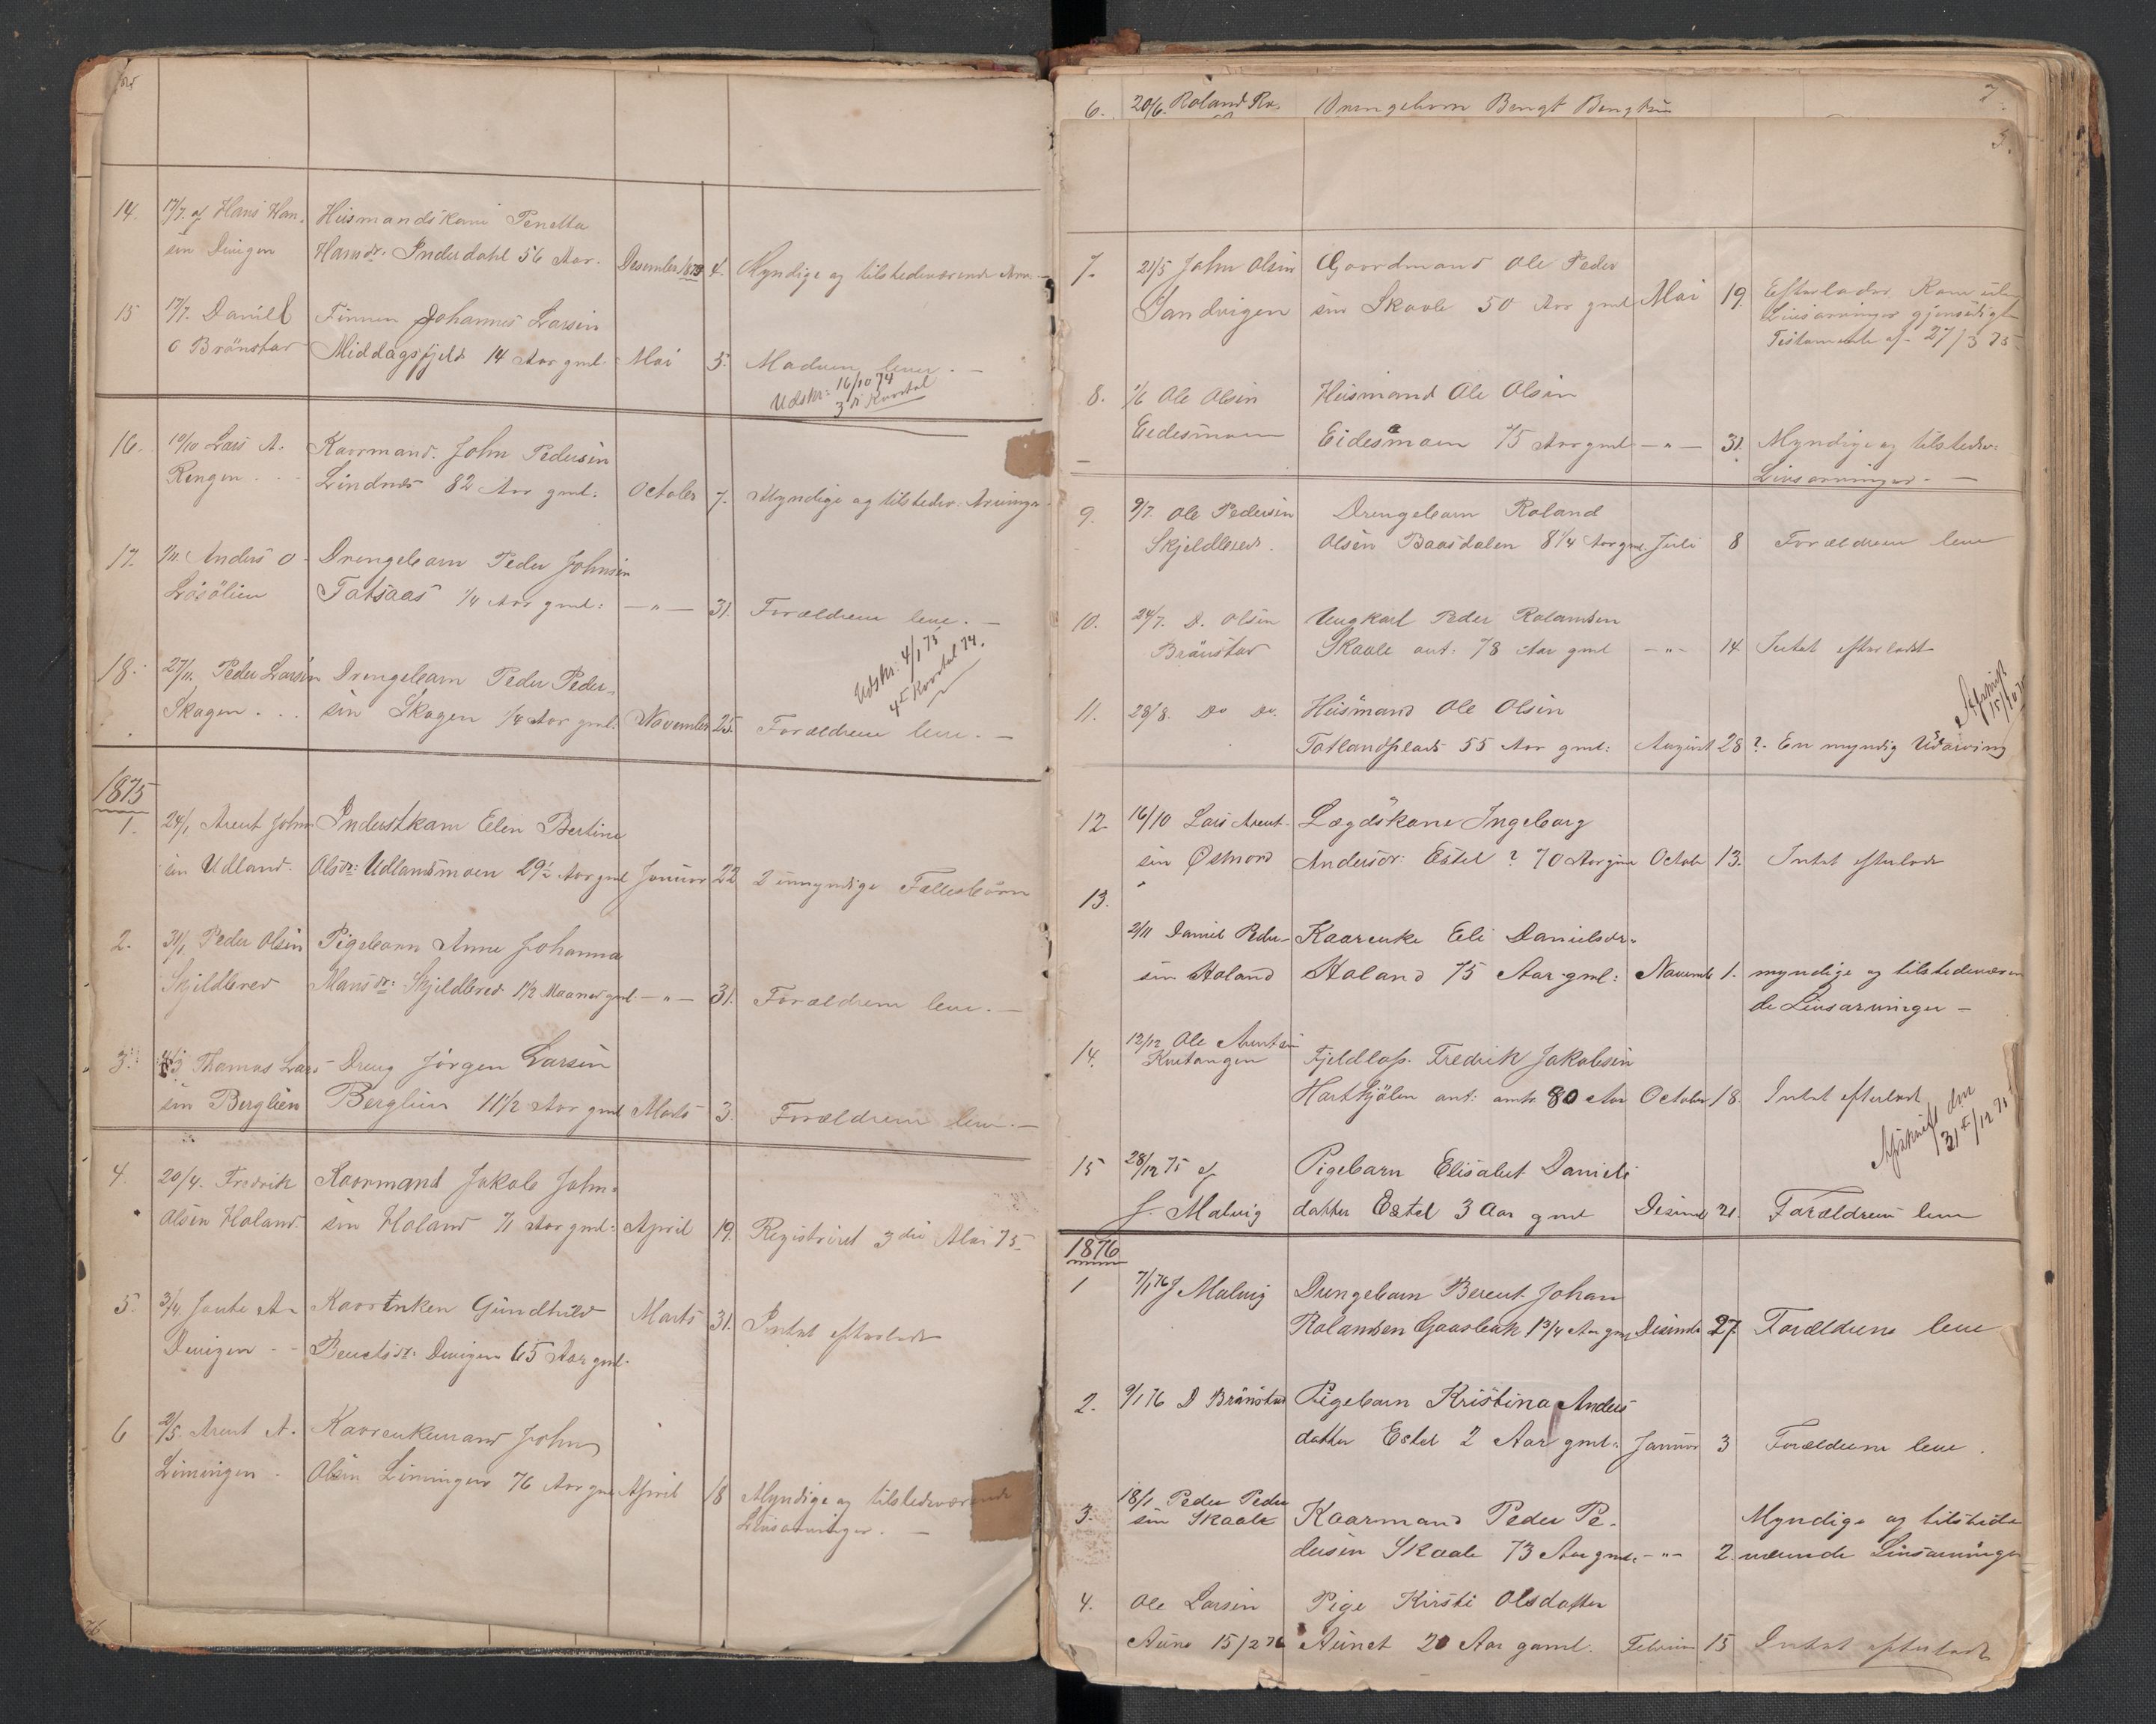 14. 17/7. af Hans Han- Husmandskone Penella
sen Devigen Hansdr. Inderdahl 56 Aar. Desember 1873 4. Myndige og tilstedeværende Arv.
15 17/7. Daniel Finnen Johannes Larsen
O Brönstad Middagsfjeld 14 Aar gml. Mai 5. Moderen lever. —
Udskr: 16/10 74
3die Kvartal
16. 10/10 Lars A. Kaarmand. John Pedersen
Rengen . Lindnes 82 Aar gml: October 7. Myndige og tilstedev. Arvinger.
17. Anders O Drengebarn Peder Johnsen
Tatsaas 1/4 Aar gml: —"— 31. Forældrene leve. —
Udskr: 4/1 75
4de Kvartal 74.
18. 27/11. Peder Larsen Drengebarn Peder Peder-
Skagen . . . sen Skagen 1/4 Aar gml. November 25. Forældrene leve. —
1875
1. 24/1 Arent John- Inderstkone Elen Bertine
sen Udland. Olsdr: Udlandsmoen 29½ Aar gml Januar 22 2 umyndige Fællesbörn
2. 31/1 Peder Olsen Pigebarn Anne Johanna
Skjeldbred Mansdr: Skjeldbred 1½ Maaned gml. —"— 31. Forældrene leve. —
3. Thomas Lar- Dreng Jörgen Larsen
sen Berglien Berglien 11½ Aar gml Marts 3. Forældrene leve. —
4. 20/4. Fredrik Kaarmand Jakob John-
Olsen Holand. sen Holand 71 Aar gml: April 19. Registreret 3die Mai 75
5. 3/4. A- Kaarenken Gundhild Marts 31. Intet efterladt
Devigen - Bentsdr: Devigen 65 Aar gml.
6 2/5. Arent A. Kaarenkemand John
Limingen - Olsen Limingen 76 Aar gml April 18 Myndige og tilstedeværende
Livsarvinger. —
6. 20/6. Roland Ro. Drengebarn Bengt Bengtsen
7.
3.
7. 21/5 John Olsen Gaardmand Ole Peder
Sandvigen sen Skaale 50 Aar gml Mai 19. Efterlader Kone uden
Livsarvinger gjensidigt
Testamente af 27/3 75
8. 1/6 Ole Olsen Husmand Ole Olsen
Eidesmoen Eidesmoen 75 Aar gml —"— 31. Myndige og tilstedev:
Livsarvinger. —
9. 9/7. Ole Pedersen Drengebarn Roland
Skjeldbred. Olsen Baasdalen 8¼ Aar gml. Juli 8 Forældrene leve
10. 24/7. D. Olsen Ungkarl Peder Rolandsen
Brönstad Skaale ant. 78 Aar gml —"— 14 Intet efterladt
11. 28/8. Do Do. Husmand Ole Olsen
Totlandsplads 55 Aar gml: August 28 ?. En myndig Udarving
Afskrift
15/10 75
12 16/10 Lars Arent- Lægdskone Ingeborg
sen Östnord Andersdr: Estel ? 70 Aar gml October 13. Intet efterladt
13.
2/11 Daniel Peder- Kaarenke Eli Danielsdr.
sen Holand Holand 75 Aar gml: November 1. myndige og tilstedeværen
de Livsarvinger —
14. 12/12 Ole Arentsen
Kvetangen Fjeldlap. Fredrik Jakobsen
Hartkjölen ant: omtr. 80 Aar October 18. Intet efterladt
Afskrift den
31te/12 75
15 28/12 75 af Pigebarn Elisabet Daniels
J. Malvig datter Estel 3 Aar gml Desemb 21. Forældrene leve
1876
1 7/1 76 J Malvig Drengebarn Berent Johan
Rolandsen Gaasbak 1 3/4 Aar gml Desember 27. Forældrene leve
2. 9/1 76 D Brönstad Pigebarn Kristina Anders
datter Estel 2 Aar gml. Januar 3 Forældrene leve.
3. 18/1 Peder Peder
sen Skaale Kaarmand Peder Pe- Myndige og tilstede
dersen Skaale 73 Aar gml. —"— 2. værende Livsarvinger
4. Ole Larsen Pige Kirsti Olsdatter
Aune 15/2 76 Aunet 20 Aar gaml. Februar 15 Intet efterladt